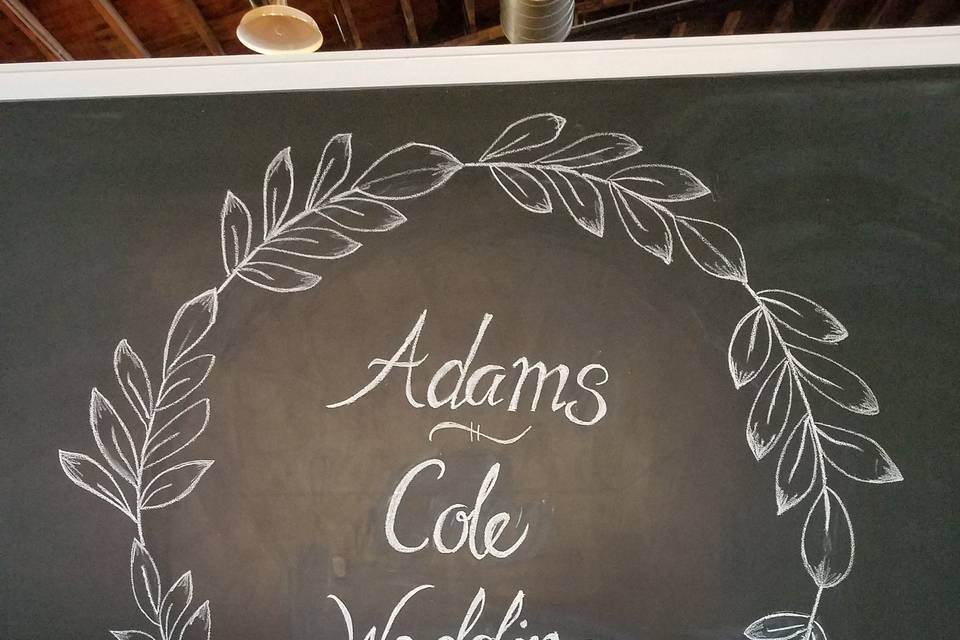 Adams
Cole